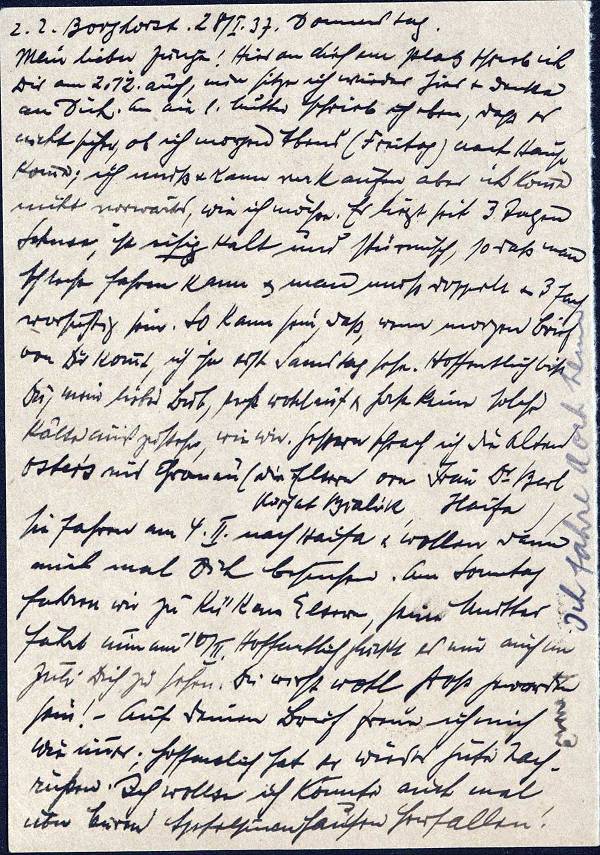 z. Z. Borghorst. 28/I. 37. Donnerstag.
Mein lieber Junge! Hier an diesem Platz schrieb ich
Dir am 2.12. auch, nun sitze ich wieder hier & denke
an Dich. An die l. Mutter schrieb ich eben, daß es
nicht sicher, ob ich morgen Abend (Freitag) nach Hause
komme; ich muß & kann verkaufen aber ich komme
nicht vorwärts, wie ich möchte. Es liegt seit 3 Tagen
Schnee, ist eisig kalt und stürmisch, so daß man
schlecht fahren kann & man muß doppelt & 3 fach
vorsichtig sein. So kann sein, daß, wenn morgen Brief
von Dir kommt, ich ihn erst Samstag sehe. Hoffentlich bist
Du, mein lieber Bub, recht wohlauf & hast keine solche
Kälte auszustehen, wie wir. Gestern sprach ich die alten
Osters aus Gronau (die Eltern von Frau Dr. Berl
Kirjat Bialik, Haifa)
Sie fahren am 4. II. nach Haifa & wollen dann
auch mal Dich besuchen. Am Sonntag
fahren wir zu Eltern, seine Mutter
fährt nun am 10/II. Hoffentlich glückt es mir auch im
Juli Dich zu sehen. Du wirst wohl groß geworden
sein! - Auf Deinen Brief freue ich mich
wie immer; hoffentlich hat er wieder gute Nach-
richten. Ich wollte ich könnte auch mal
über Euren Apfelsinenhaufen herfallen!
Ich fahre doch heim